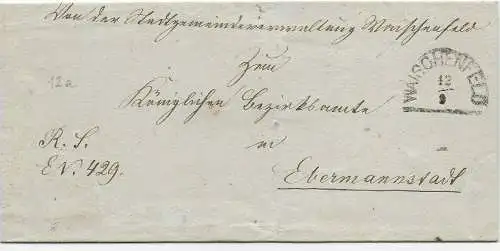 Von der Stadtgemeindeverwaltung Waischenfeld
Zum
WAISCHENFELD
12
9
12a
Königlichen Bezirksamte
R. S.
in
E N. 429.
Ebermannstadt